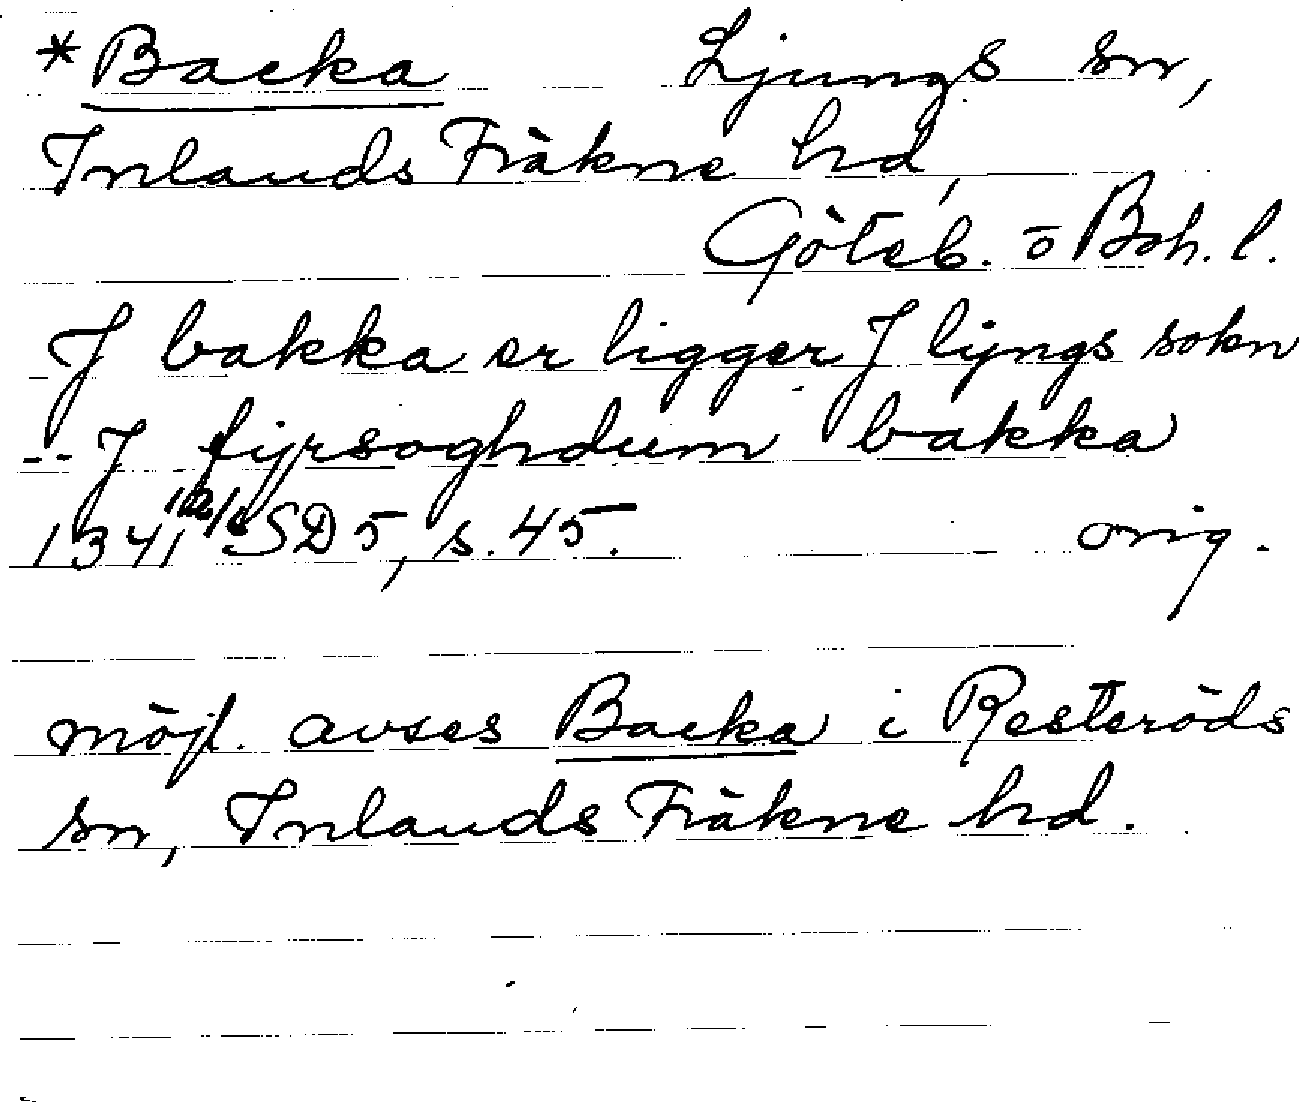 *Backa Ljungs sn,
Inlands Fräkne hd,
Göteb. o Boh. l.
J bakka er ligger J lijngs sokn
-- J fijrsoghdum bakka
1341 SD 5, s. 45. orig.
möjl. avses Backa i Resteröds
sn, Inlands Fräkne hd.